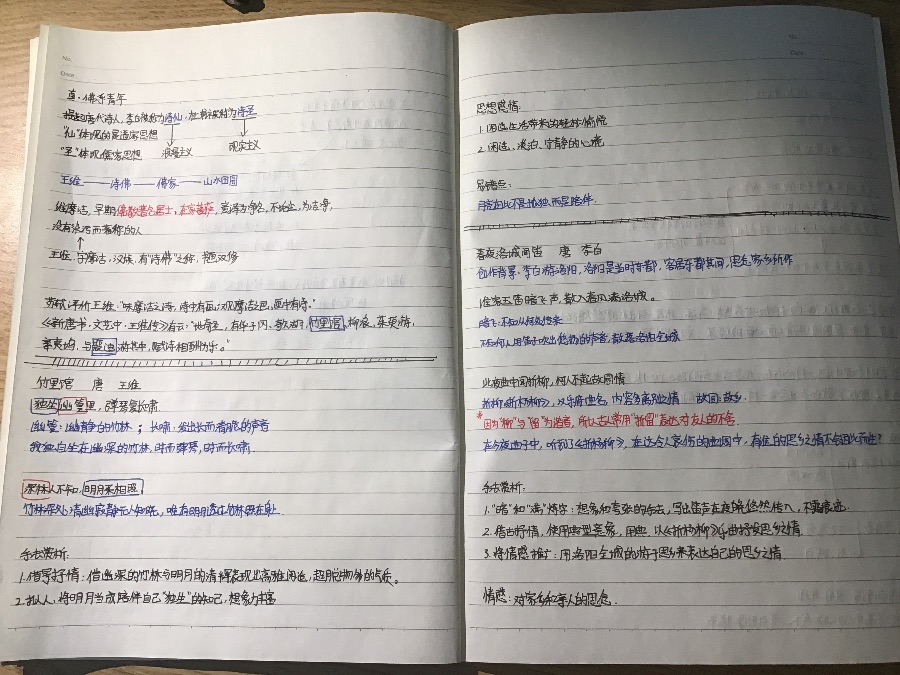 No.
Date
直·佛系青年
提起唐代诗人,李白被称为诗仙,杜甫被称为诗圣
"仙"体现的是道家思想
"圣"体现儒家思想 浪漫主义 现实主义
王维——诗佛——佛家——山水田园
维摩诘,早期佛教著名居士,在家菩萨,意译为净名,不垢尘,为洁净,
没有染污而著称的人
王维,字摩诘,汉族,有"诗佛"之称,书画双修
苏轼评价王维:"味摩诘之诗,诗中有画;观摩诘之画,画中有诗。"
《新唐书·文艺中·王维传》有云:"地奇胜,有华子冈、欹湖、竹里馆、柳浪、茱萸沜、
辛夷坞,与裴迪游其中,赋诗相酬为乐。"
竹里馆 唐 王维
独坐幽篁里,弹琴复长啸
幽篁:幽静的竹林; 长啸:发出长而清脆的声音
我独自坐在幽深的竹林,时而弹琴,时而长啸
深林人不知,明月来相照
竹林深处清幽寂静无人知晓,唯有明月透过竹林照在身上
手法赏析:
1.借景抒情:借幽深的竹林与明月的清辉表现出高雅闲适,超脱物外的气质。
2.拟人,将明月当成陪伴自己"独坐"的知己,想象力丰富
No.
Date
思想感情:
1.闲适生活带来的轻松愉悦
2.闲适、淡泊、宁静的心境
易错点:
月亮在此不是孤独,而是陪伴
春夜洛城闻笛 唐 李白
创作背景:李白游洛阳,洛阳是当时东都,客居东都其间,思念家乡所作
谁家玉笛暗飞声,散入春风满洛城。
暗飞:不知从何处传来
不知何人用笛子吹出悠扬的声音,散落洛阳全城
此夜曲中闻折柳,何人不起故园情
折柳:《折杨柳》,汉乐府曲名,内容多离别之情 故园:故乡
*因为"柳"与"留"为谐音,所以古人常用"折留"表达对友人的不舍
在今夜曲子中,听到了《折杨柳》,在这令人哀伤的曲调中,有谁的思乡之情不会因此而生?
手法赏析:
1."暗"和"满"炼字:想象和夸张的手法,写出笛声在夜晚悠然传入,不露痕迹
2.借曲抒情,使用典型意象,用典,以《折杨柳》乐曲抒发思乡之情
3.将情感推广:用洛阳全城的游子思乡来表达自己的思乡之情
情感:对家乡和亲人的思念.